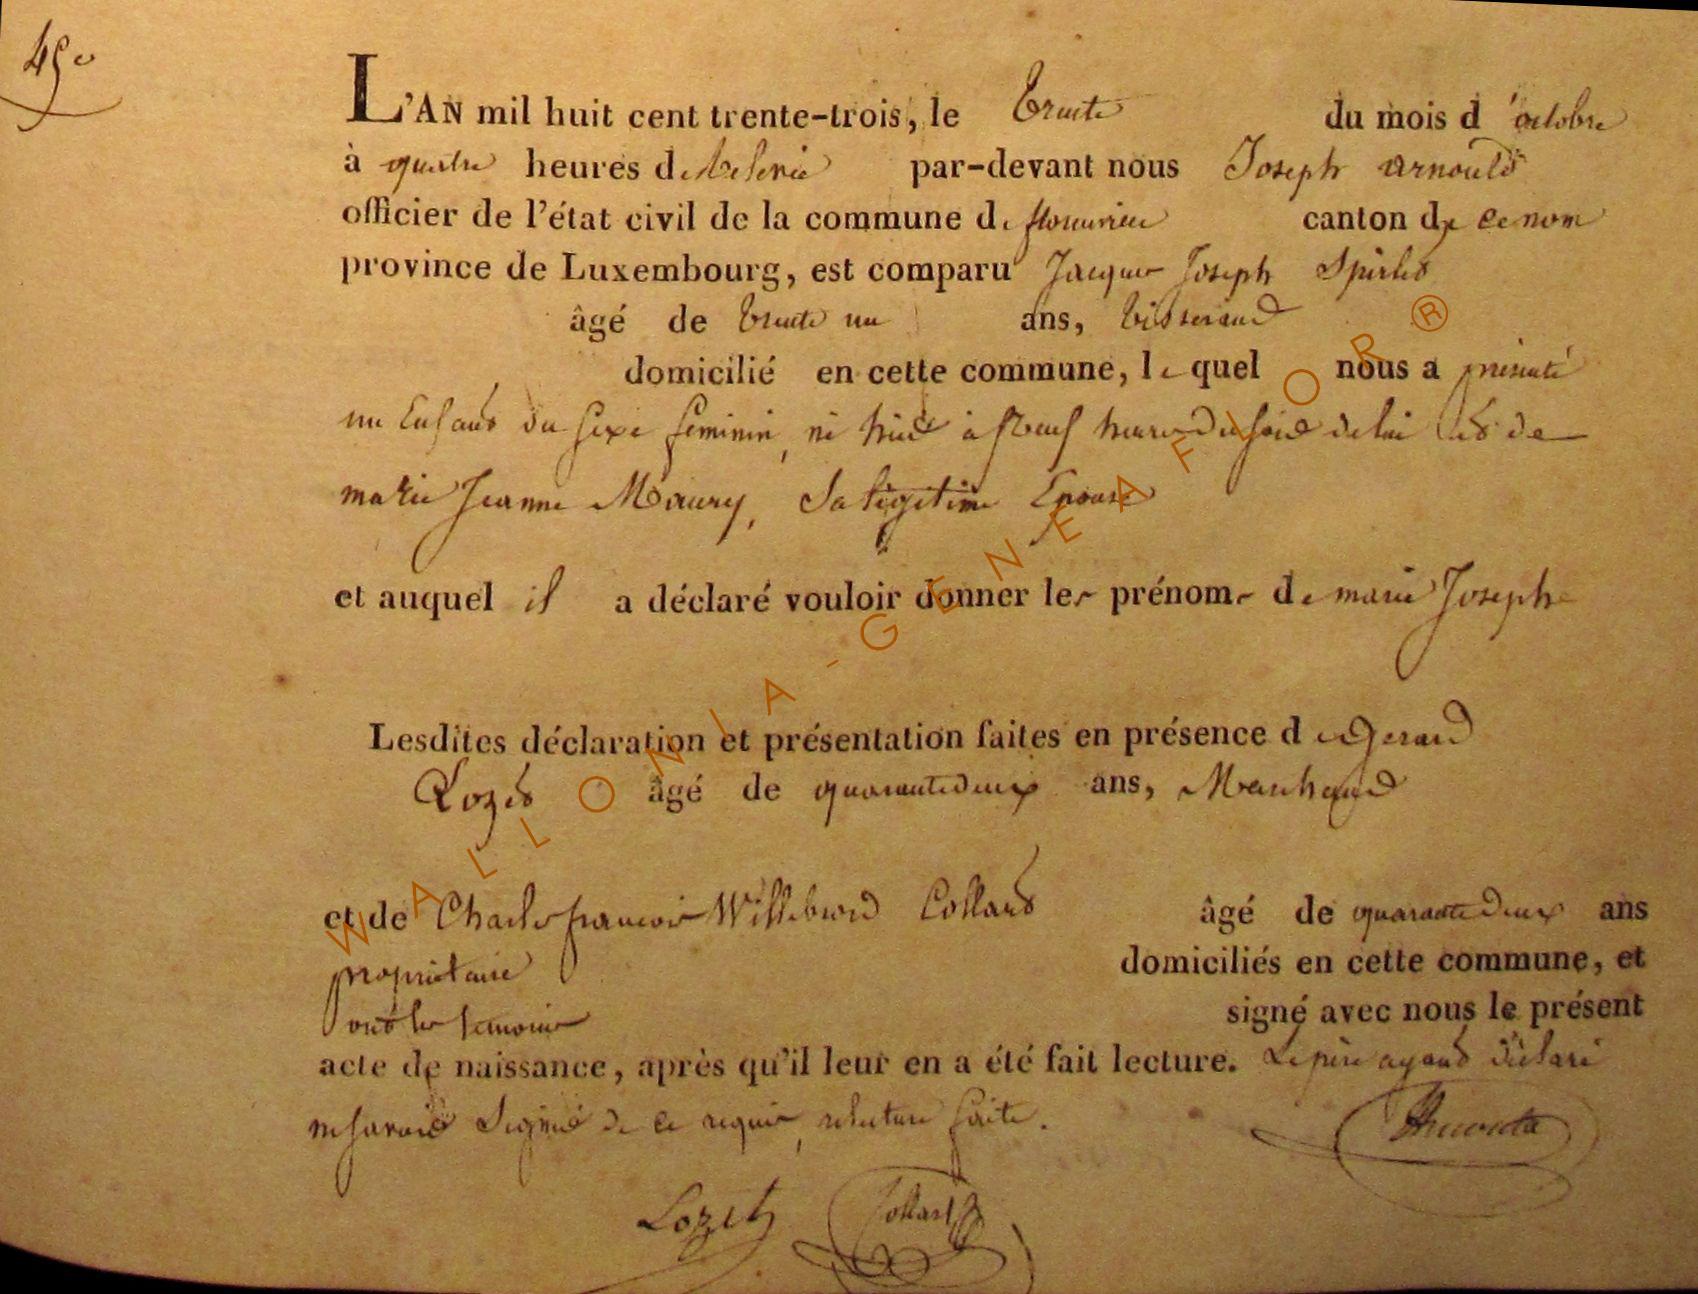 45e
L'AN mil huit cent trente-trois, le trente du mois d'octobre
à quatre heures de relevée par-devant nous Joseph Arnould
officier de l'état civil de la commune de florenville canton de ce nom
province de Luxembourg, est comparu Jacques Joseph Spirlet
âgé de trente un ans, tisserand
domicilié en cette commune, lequel nous a présenté
un Enfant du sexe feminin, né hier à neuf heures du soir de lui et de
marie Jeanne Maury, Sa légitime Epouse
et auquel il a déclaré vouloir donner les prénoms de marie Joseph
Lesdites déclaration et présentation faites en présence de Gerard
Lozet âgé de quarante deux ans, Marchand
et de Charles françois Willebrord Collard âgé de quarante deux ans
propriétaire domiciliés en cette commune, et
ont les temoins signé avec nous le présent
acte de naissance, après qu'il leur en a été fait lecture. Le père ayant déclaré
ne savoir Signer de ce requis, relecture faite.
Lozet Collard
WALLONIA-GENEAFLOR ®